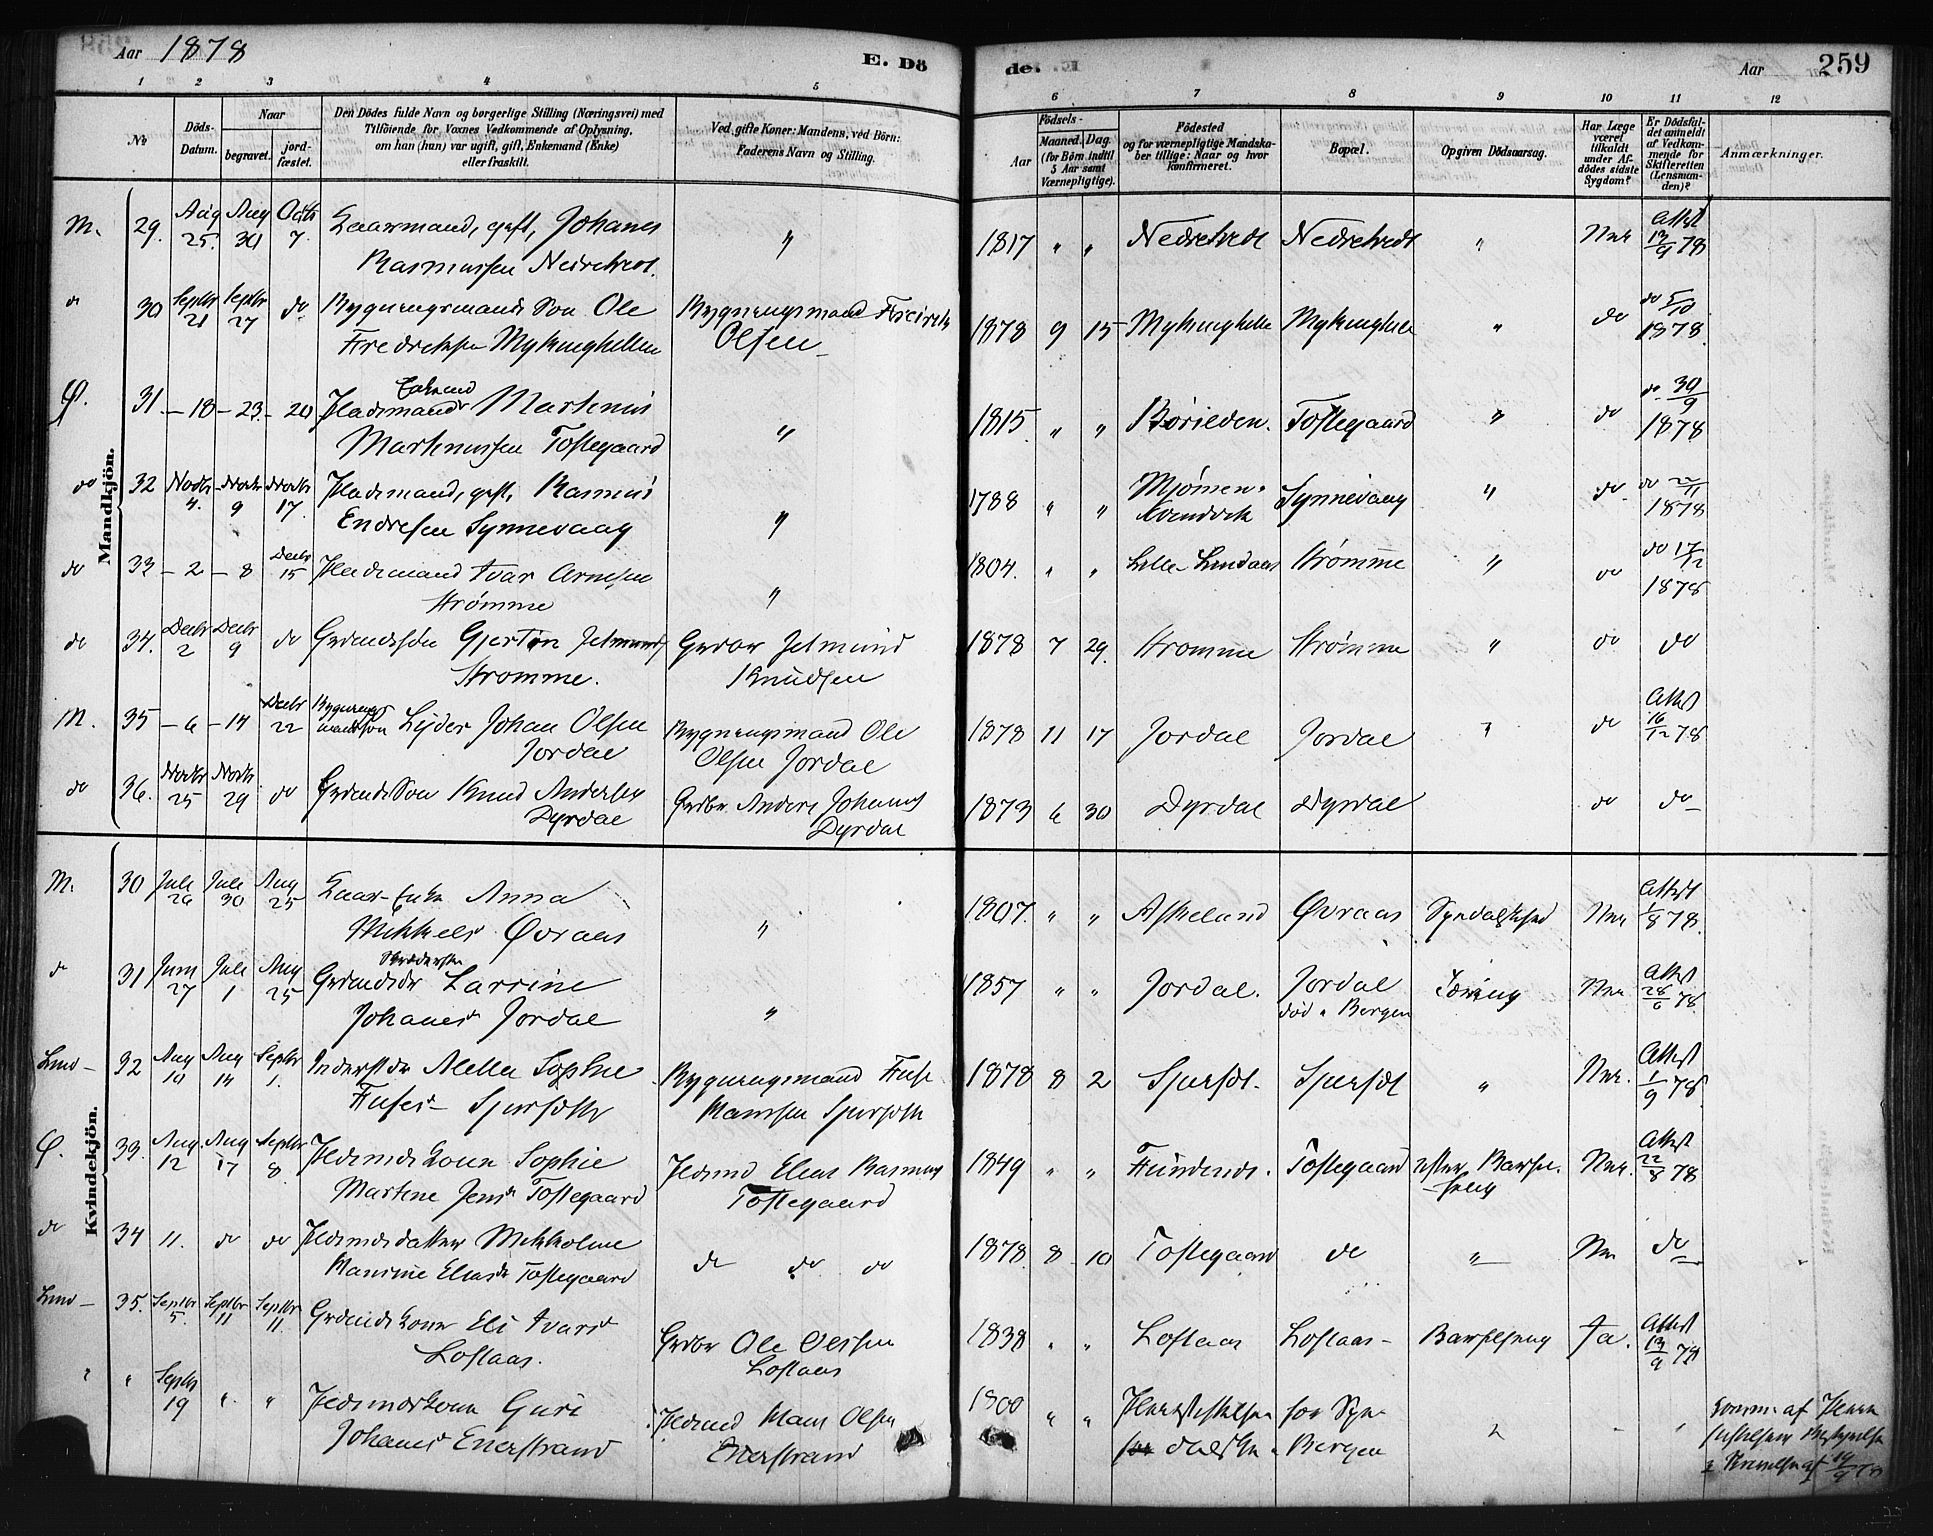 Aar 1878
E. Dö
de.
Aar
259
1 2 3 4 5
6 7 8 9 10 11 12
No
Döds-
Datum.
Naar
begravet.
jord-
fæstet.
Den Dödes fulde Navn og borgerlige Stilling (Næringsvei) med
Tilföiende for Voxnes Vedkommende af Oplysning,
om han (hun) var ugift, gift, Enkemand (Enke)
eller fraskilt.
Ved gifte Koner: Mandens, ved Börn:
Faderens Navn og Stilling.
Födsels-
Aar
Maaned.
Dag
(for Börn indtil
5 Aar samt
Værnepligtige).
Födested
og for værnepligtige Mandska-
ber tillige: Naar og hvor
konfirmeret.
Bopæl.
Opgiven Dödsaarsag.
Har Læge
været
tilkaldt
under Af-
dödes sidste
Sygdom?
Er Dödsfal-
det anmeldt
af Vedkom-
mende for
Skifteretten
(Lensman-
den)?
Anmærkninger.
Mandkjön.
M. 29. Aug 25. Aug 30 Octb 7. Kaarmand, gift, Johanes
Rasmussen Nedretvedt.
" 1817 " " Nedretvedt Nedretvedt " Nei Attest 13/9 78
do 30 Septbr 21 Septbr 27 do Bygningsmands Søn Ole
Fredriksen Mykinghellen
Bygningsmand Fredrik
Olsen
1878 9 15 " do do 5/10
1878.
Ø. 31. - 18 - 23 - 20 Pladsmand Enkemand Martinus
Martinussen Toftegaard
" 1815 " " Toftegaard " do do 30/9
1878
do 32 Novbr 4. Novbr 9 Novbr 17. Pladsmand, gift, Rasmus
Endresen Synnevaag
" 1788 " " Mjømen Synnevaag " do do 22/11
1878
do 33 - 2 - 8 Decbr 15 Pladsmand Ivar Arnesen
Strømme
" 1804. " " Lille Lindaas Strømme " do do 17/12
1878
do 34. Decbr 2 Decbr 9 do Grdmandssøn Gjertin Jetmund
Stromme.
Grdbr Jetmund
Knudsen
1878 7 29. Stromme Strømme " do do
M. 35 - 6 - 14 Decbr 22 Bygningsmandssøn Lyder Johan Olsen
Jordal
Bygningsmand Ole
Olsen Jordal
1878 11 17 Jordal Jordal " do Attest 16/12 78
do 36. Novbr 25 Novbr 29 do Grdmands Søn Knud Andersen
Dyrdal
Grdbr Anders Johannes
Dyrdal
1873 6 30 Dyrdal Dyrdal do do
Kvindekjön.
M. 30 Juli 26 Juli 30 Aug 25 Kaar-Enke Anna
Mikkelsd Øvraas
" 1807. " " Askeland Øvraas Spedalskhed Nei Attest 1/8 78.
do 31 Juni 27 Juli 1 Aug 25 Grdmandsdr Larsine
Johanesd Jordal
" 1857 " " Jordal. Jordal
død i Bergen
Tæring Nei Attest 28/6 78.
Lind- 32 Aug 10 Aug 14 Septbr 1. Inderstdr Aletta Sophie
Fusesd Spursøth
Bygningsmand Fuse
Monsen Spursøth
1878 8 2 " Nei. Attest 1/9 78.
Ø. 33. Aug. 12 Aug 17 Septbr 8. Pldsmds Kone Sophie
Martine Jensd Toftegaard
Pldsmd Elias Rasmus
Toftegaard
1849 " " Toftegaard efter Barsel-
seng
Nei. Attest 22/8 78
do 34 11. do do Pldsmdsdatter Mikkoline
Toftegaard
do do do
1878. 8 10 Toftegaard do " Nei do
Lind- 35. Septbr 5. Septbr 11 Septbr 11. Grdmands Kone Eli Ivarsd
Loftaas.
Grdbr Ole Olssen
Loftaas
1838 " " Loftaas Loftaas- Barselseng Ja. Attest 13/9 78
" " Septbr 19 " " Pldsmdskone Guri
Johanesd Enerstrand
Pldsmd Mons Olsen
Enerstrand
1800 " " Pleiestiftelsen for Spe-
dalske i Bergen
" " "
19/9 78